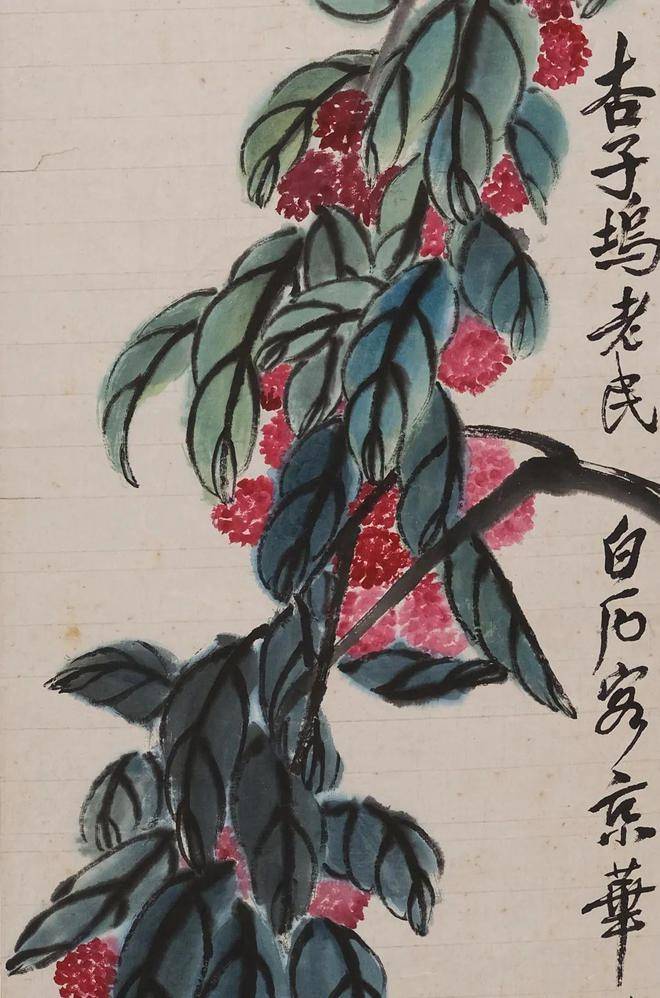 杏子塢老民白石客京華